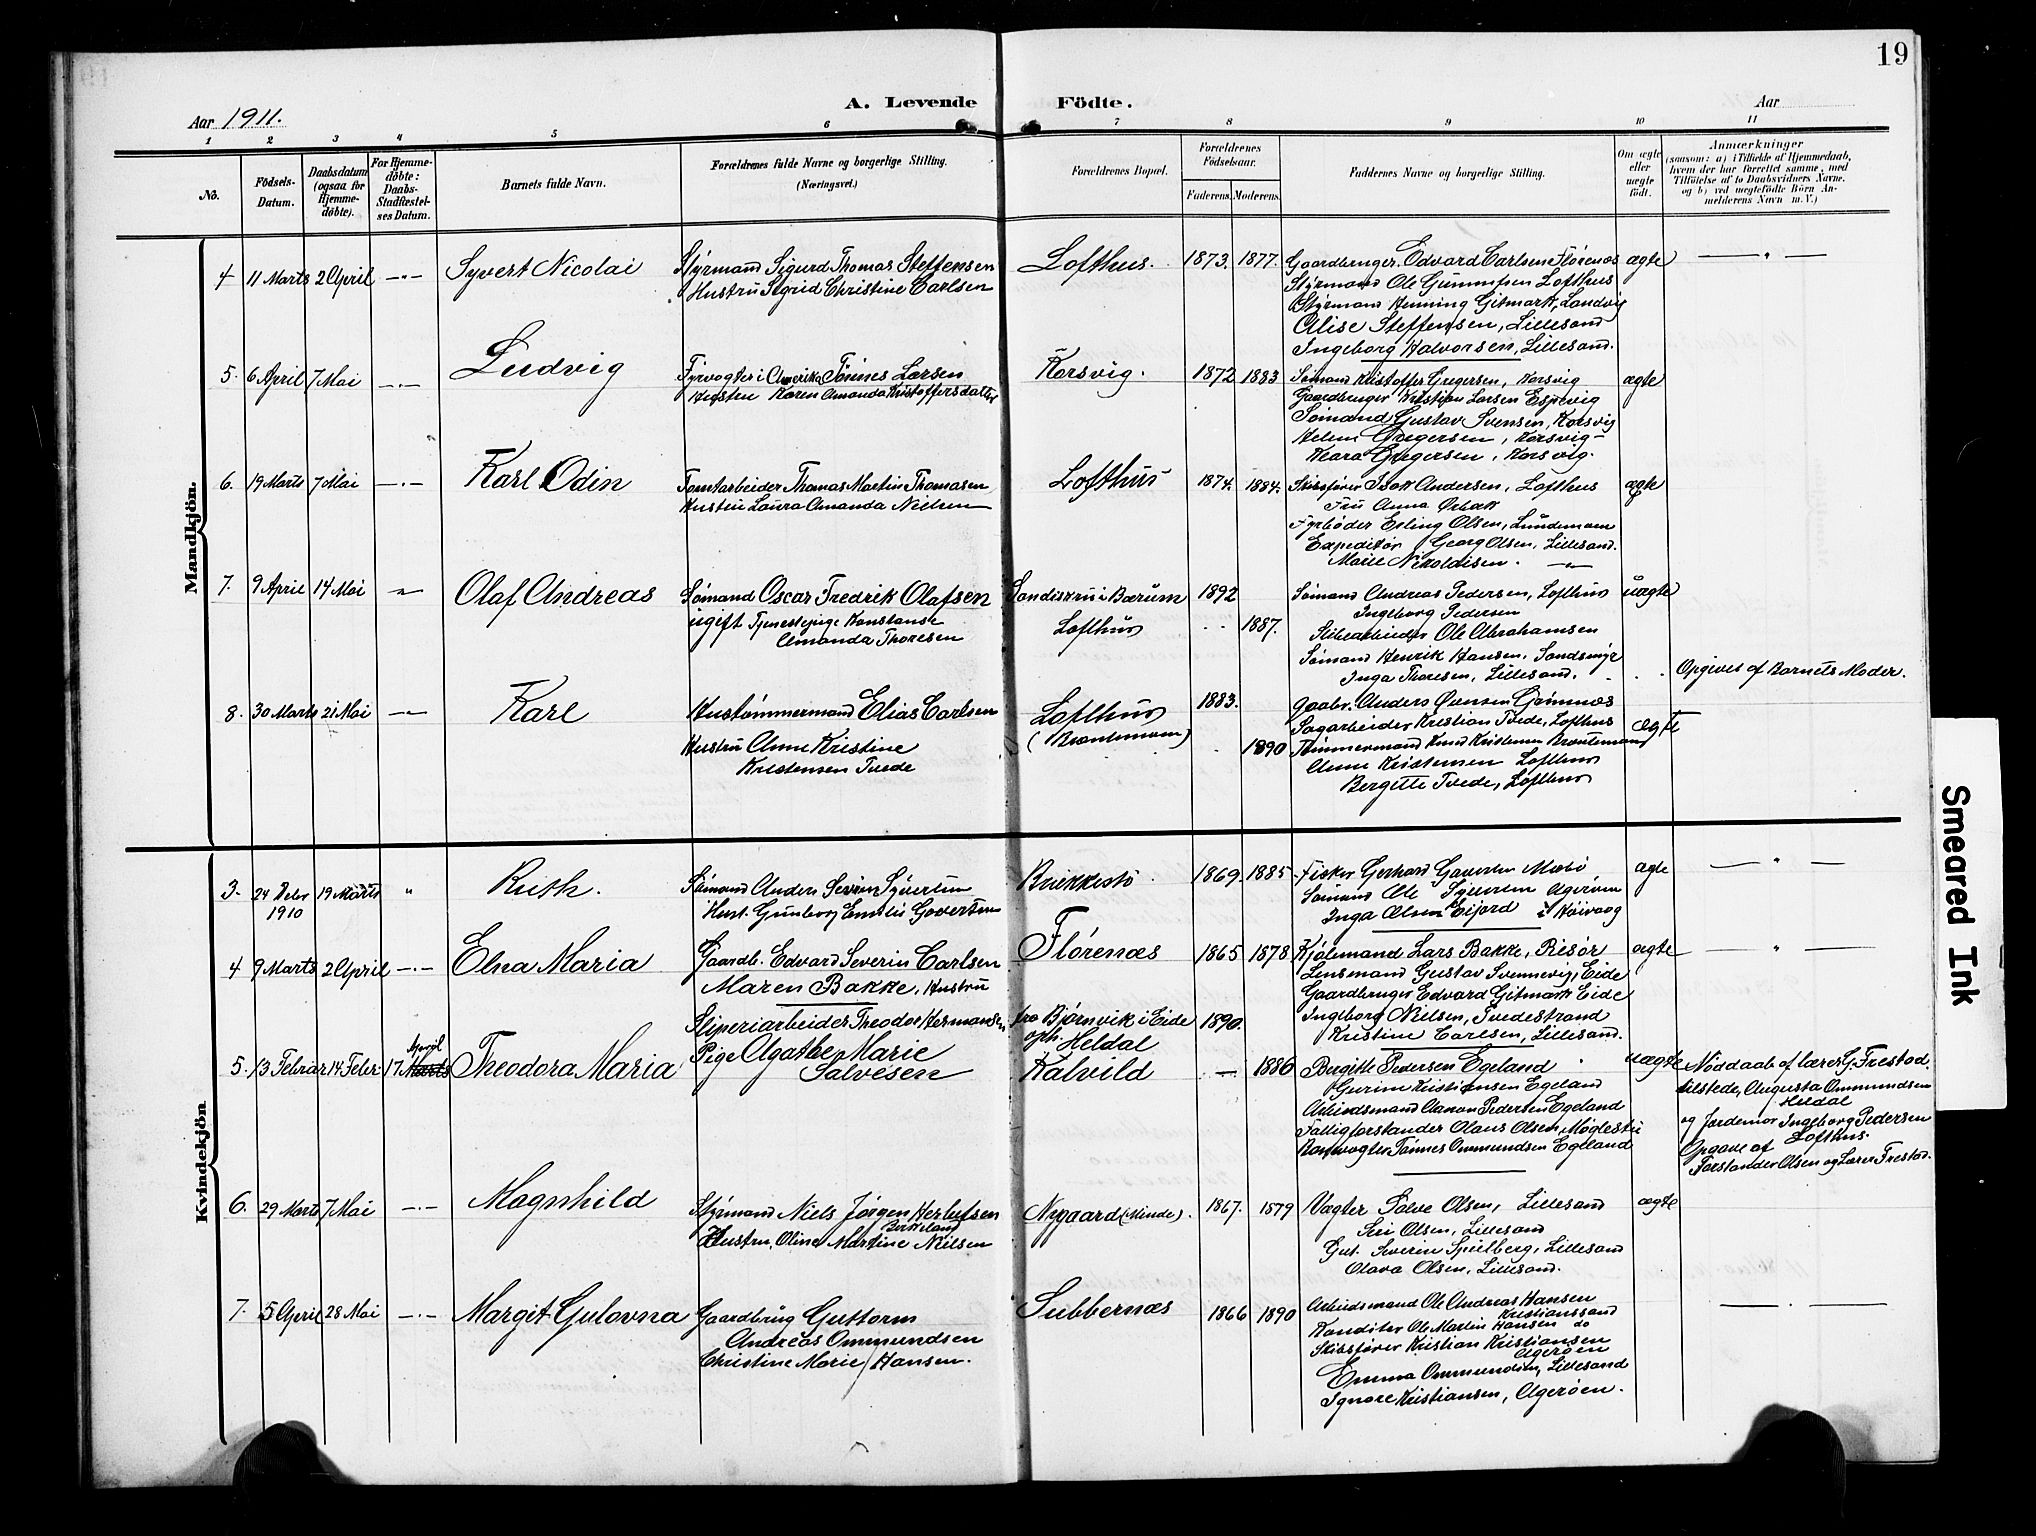 19
A. Levende Födte.
Aar 1911.
Aar
1 2 3 4 5 6 7 8 9 10 11
No.
Födsels-Datum.
Daabsdatum (ogsaa for Hjemme-döbte).
For Hjemme-döbte: Daabs-Stadfæstel-ses Datum.
Barnets fulde Navn.
Forældrenes fulde Navne og borgerlige Stilling.
(Næringsvei.)
Forældrenes Bopæl.
Forældrenes Födselsaar.
Faderens. Moderens.
Faddernes Navne og borgerlige Stilling.
Om ægte eller uægte födt.
Anmærkninger
(saasom: a) i Tilfælde af Hjemmedaab, hvem der har forrettet samme, med Tilföielse af to Daabsvidners Navne. og b) ved uægtefödte Börn An-melderens Navn m. V.)
Mandkjön.
4 11 Marts 2 April -"- Syvert Nicolai
Styrmand Sigurd Thomas Steffensen
Hustru Sigrid Christine Carlsen
Lofthus. 1873. 1877.
Gaardbruger. Edvard Carlsen Flørenæs ægte — " —
Styrmand Ole Gunnufsen Lofthus
Styrmand Henning Gitmark, Landvig
Alise Steffensen, Lillesand
Ingeborg Halvorsen, Lillesand.
5. 6 April 7 Mai -"- Ludvig
Fyrvogter i Amerika Tönnes Larsen
Hustru Karen Amanda Kristoffersdatter
Korsvig. 1872 1883
Sömand Kristoffer Gregersen, Korsvig ægte
Gaardbruger Kristian Larsen Espevig
Sömand Gustav Svensen, Korsvig
Helene Gregersen, Korsvig-
Klara Gregersen, Korsvig.
6. 19 Marts 7 Mai -"- Karl Odin
Tomtarbeider Thomas Martin Thomasen
Hustru Laura Amanda Nielsen
Lofthus 1874. 1884.
Skibsfører Isak Andersen, Lofthus ægte
Fru Anna Ørbæk
Fyrböder Erling Olsen, Lundemoen
Expeditör Georg Olsen, Lillesand.
Marie Nikolaisen. -"-
7. 9 April 14 Mai " Olaf Andreas
Sömand Oscar Fredrik Olafsen
ugift Tjenestepige Konstanse
Amanda Thoresen
Sandiskru i Bærum 1892
Lofthus .. 1887.
Sömand Andreas Pedersen, Lofthus uægte
Ingeborg Pedersen
Slibearbeider Ole Abrahamsen
Sömand Henrik Hansen, Sandsmyr
Inga Thoresen, Lillesand.
Opgivet af Barnets Moder.
8. 30 Marts 21 Mai -"- Karl
Hustömmermand Elias Carlsen
Hustru Anne Kristine
Kristensen Tvede
Lofthus
(Brontemoen)
1883. 1890
Gaabr. Anders Ovensen Grömnæs
Sagarbeider Kristian Tvede, Lofthus ægte
Tömmermand Knud Kristensen Brontemoen
Anne Kristensen Lofthus
Bergitte Tvede, Lofthus
Kvindekjön
3. 24 Debr 1910 19 Marts " Ruth.
Sömand Anders Severin Syvertsen
Hust. Gunborg Emilie Govertsen
Brækkestö. 1869. 1885
Fisker Gerhard Govertsen Mæbö ægte — " —
Sömand Ole Syversen Agerøen
Inga Olsen Eijord i Höivaag
4 9 Marts 2 April -"- Elna Maria
Gaardb. Edvard Severin Carlsen
Maren Bakke, Hustru
Flørenæs 1865 1878
Kjölemand Lars Bakke, Risør ægte — " —
Lensmand Gustav Svennevig, Eide
Gaardbruger Edvard Gitmark Eide
Ingeborg Nielsen, Tvedestrand
Kristine Carlsen, Lillesand.
5. 13 Februar 14 Febr. 17 Marts April Theodora Maria
Sliperiarbeider Theodor Hermansen
Pige Agathe Marie
Salvesen
fra Bjørnvik i Eide 1890.
oph. Heldal
Kalvild — 1886
Birgitte Pedersen Egeland uægte
Gurine Kristiansen Egeland
Arbeidsmand Aanon Pedersen Egeland
Fattigforstander Olaus Olsen, Möglestu
Tönnes Ommundsen Egeland
Nöddaab af lærer G. Frestad.
tilstede, Augusta Ommundsen
Heldal
og Jordemor Ingeborg Pedersen
Lofthus.
Opgave af
Forstander Olsen og Lærer Frestad.
6. 29 Marts 7 Mai -"- Magnhild
Styrmand Niels Jörgen Herlufsen
Birkeland
Hustru, Oline Martine Nielsen
Nygaard (Minde). 1867. 1879
Vagter Salve Olsen, Lillesand ægte
Siri Olsen, Lillesand
Gul. Severin Speilberg, Lillesand
Olava Olsen, Lillesand.
7. 5 April 28 Mai -"- Margit Gulovna
Gaardbrug Guttorm
Andreas Ommundsen
Christine Marie Hansen.
Tubbernæs 1866 1890
Arbeidsmand Ole Andreas Hansen — . —
Kristianssand
Konditor Ole Martin Hansen do
Skibsfører Kristian Kristiansen
Agerøen
Emma Ommundsen, Lillesand
Signore Kristiansen, Agerøen.
Smeared Ink